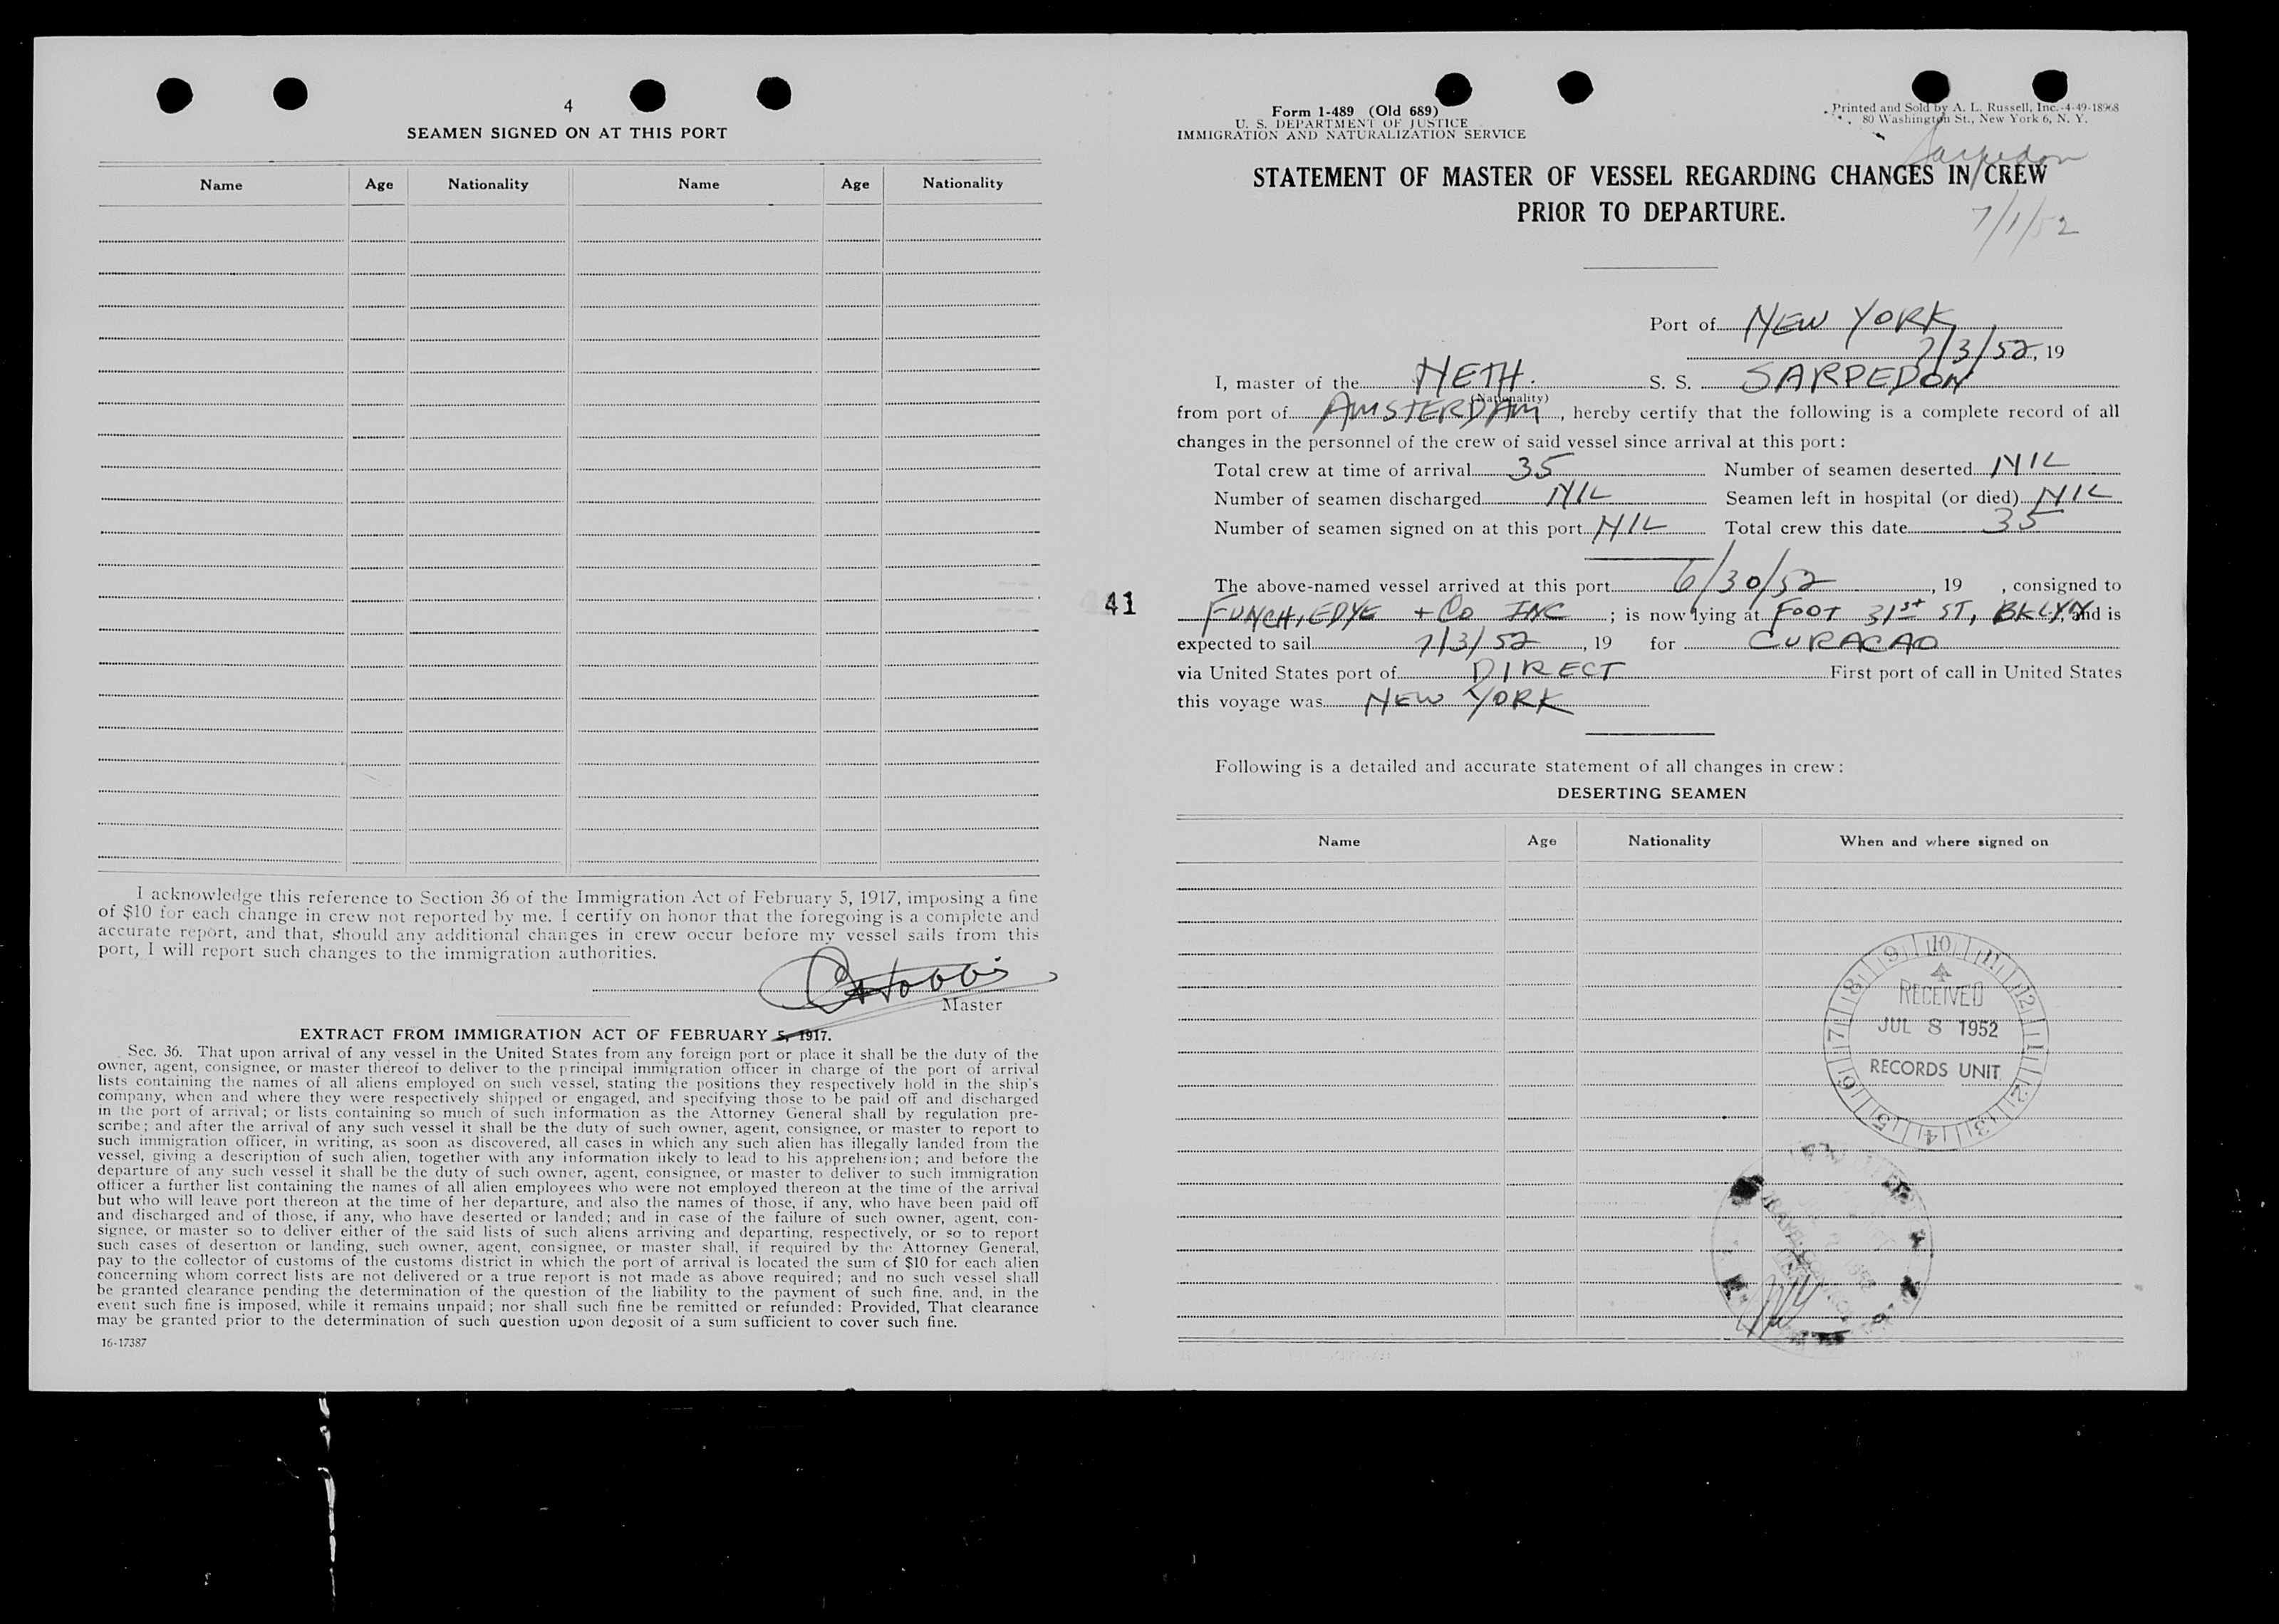 4
SEAMEN SIGNED ON AT THIS PORT
Name Age Nationality Name Age Nationality
I acknowledge this reference to Section 36 of the Immigration Act of February 5, 1917, imposing a fine
of $10 for each change in crew not reported by me. I certify on honor that the foregoing is a complete and
accurate report, and that, should any additional changes in crew occur before my vessel sails from this
port, I will report such changes to the immigration authorities.
Master
EXTRACT FROM IMMIGRATION ACT OF FEBRUARY 5, 1917.
Sec. 36. That upon arrival of any vessel in the United States from any foreign port or place it shall be the duty of the
owner, agent, consignee, or master thereof to deliver to the principal immigration officer in charge of the port of arrival
lists containing the names of all aliens employed on such vessel, stating the positions they respectively hold in the ship's
company, when and where they were respectively shipped or engaged, and specifying those to be paid off and discharged
in the port of arrival; or lists containing so much of such information as the Attorney General shall by regulation pre-
scribe; and after the arrival of any such vessel it shall be the duty of such owner, agent, consignee, or master to report to
such immigration officer, in writing, as soon as discovered, all cases in which any such alien has illegally landed from the
vessel, giving a description of such alien, together with any information likely to lead to his apprehension; and before the
departure of any such vessel it shall be the duty of such owner, agent, consignee, or master to deliver to such immigration
officer a further list containing the names of all alien employees who were not employed thereon at the time of the arrival
but who will leave port thereon at the time of her departure, and also the names of those, if any, who have been paid off
and discharged and of those, if any, who have deserted or landed; and in case of the failure of such owner, agent, con-
signee, or master so to deliver either of the said lists of such aliens arriving and departing, respectively, or so to report
such cases of desertion or landing, such owner, agent, consignee, or master shall, if required by the Attorney General,
pay to the collector of customs of the customs district in which the port of arrival is located the sum of $10 for each alien
concerning whom correct lists are not delivered or a true report is not made as above required; and no such vessel shall
be granted clearance pending the determination of the question of the liability to the payment of such fine, and, in the
event such fine is imposed, while it remains unpaid; nor shall such fine be remitted or refunded: Provided, That clearance
may be granted prior to the determination of such question upon deposit of a sum sufficient to cover such fine.
16-17387
41
Form 1-489 (Old 689)
U. S. DEPARTMENT OF JUSTICE
IMMIGRATION AND NATURALIZATION SERVICE
Printed and Sold by A. L. Russell, Inc.-4-49-18968
80 Washington St., New York 6, N. Y.
Sarpedon
STATEMENT OF MASTER OF VESSEL REGARDING CHANGES IN CREW
PRIOR TO DEPARTURE.
7/1/52
Port of NEW YORK
7/3/52, 19
I, master of the NETH. S. S. SARPEDON
(Nationality)
from port of AMSTERDAM, hereby certify that the following is a complete record of all
changes in the personnel of the crew of said vessel since arrival at this port:
Total crew at time of arrival 35 Number of seamen deserted NIL
Number of seamen discharged NIL Seamen left in hospital (or died) NIL
Number of seamen signed on at this port NIL Total crew this date 35
The above-named vessel arrived at this port 6/30/52, 19 , consigned to
FUNCH, EDYE + CO INC ; is now lying at FOOT 31st ST, BKLYN, and is
expected to sail 7/3/52, 19 for CURACAO
via United States port of DIRECT First port of call in United States
this voyage was NEW YORK
Following is a detailed and accurate statement of all changes in crew:
DESERTING SEAMEN
Name Age Nationality When and where signed on
9 10 11 12 1 2 3 4 5 6 7 8
RECEIVED
JUL 8 1952
RECORDS UNIT